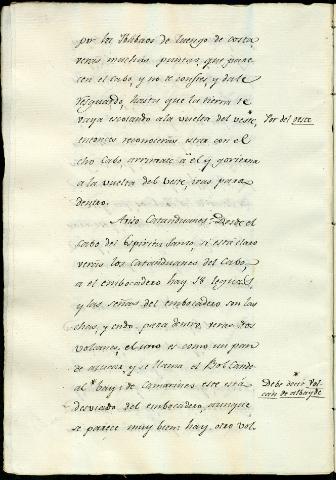 por los Ibabaos de luengo de costa,
verás muchas puntas, que pare
cen el cabo, y no te confies, y dale
resguardo, hasta que la tierra te
vaya escotando a la vuelta del veste*,
entonces reconocerás estar con el
cho cabo, arrimate a él y gobierna
a la vuelta del veste, iras para
dentro.
Aviso Catanduanes. Desde el
cabo del Espiritu Santo, si está claro
verás los Catanduanes del Cabo,
a el embocadero hay 18 leguas,
y las señas del embocadero son las
chas, y endo para dentro, verás dos
volcanes, el uno es como un pan
de azucar y se llama el Bolcan de
al* bay; de Camarines este está
desviado del embocadero, aunque
se parece muy bien: hay otro vol
Por del oeste
*
Debe decir Vol
can de albayde